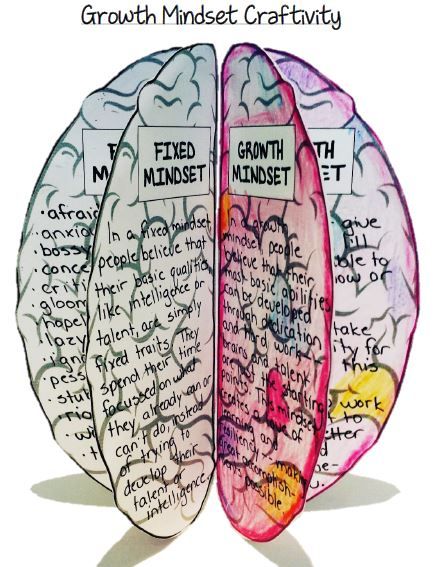 Growth Mindset Craftivity
F
M
·afraid
·anxio
boss
·conce
·criti
·gloom
·hopel
·lazy
·pess
·stub
FIXED
MINDSET
In a fixed mindset
people believe that
their basic qualities,
like intelligence or
talent, are simply
fixed traits. They
spend their time
focussed on what
they already can or
can't do, instead
of trying to
develop their
talent or
intelligence.
GROWTH
MINDSET
In a growth
mindset people
believe that their
most basic abilities
can be developed
through dedication
and hard work -
brains and talent
are the starting
point. This mindset
creates a love of
learning and
resiliency - making
great accomplish-
possible.
TH
ET
give
ill
ble to
now or
take
ity for
this
work
to
tter